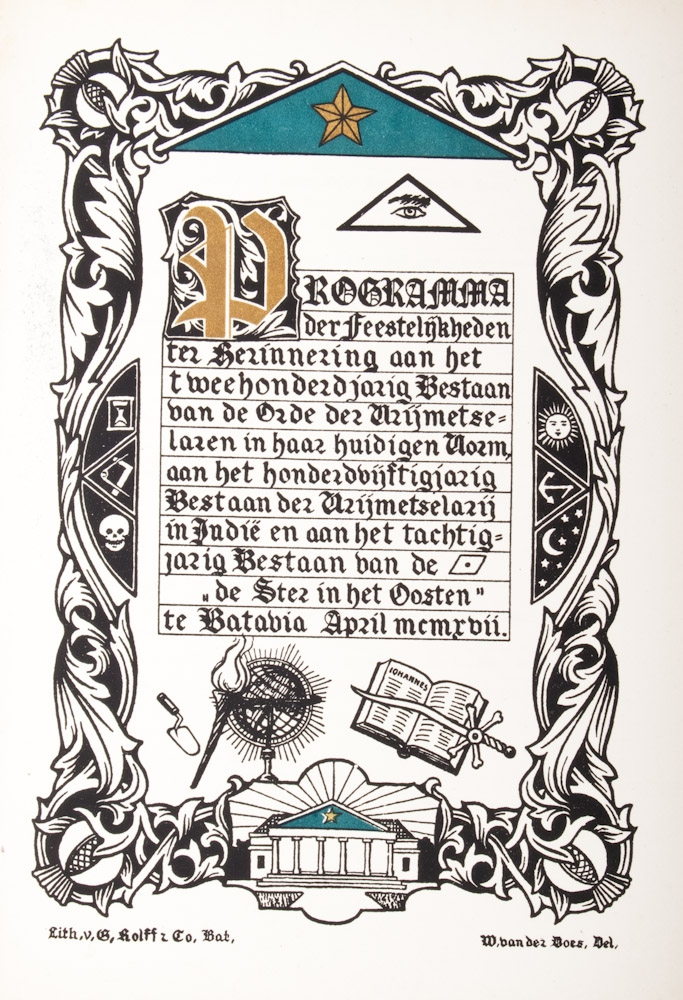 PROGRAMMA
der Feestelijkheden
ter Herinnering aan het
tweehonderdjarig Bestaan
van de Orde der Vrijmetse=
laren in haar huidigen Vorm,
aan het honderdvijftigjarig
Bestaan der Vrijmetselarij
in Indië en aan het tachtig=
jarig Bestaan van de
„de Ster in het Oosten"
te Batavia April mcmxvii.
IOHANNES
Lith. v. G. Kolff & Co, Bat.
W. van der Does, Del.